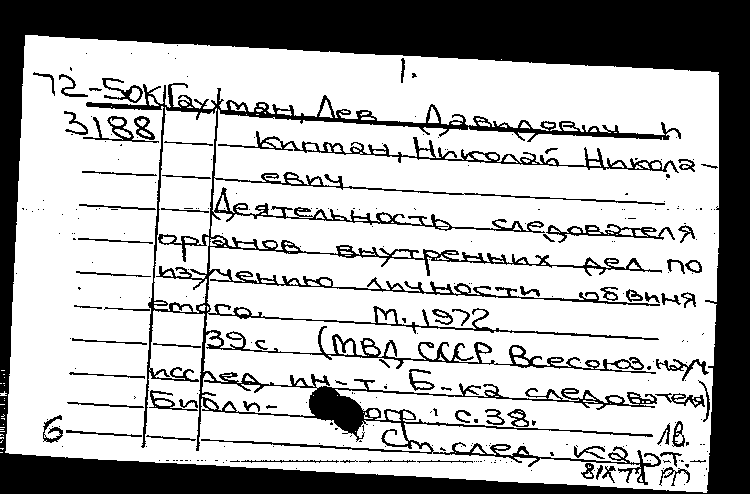 1.
72-50К Гаухман, Лев Давидович и
3188 Кипман, Николай Никола-
евич
Деятельность следователя
органов внутренних дел по
изучению личности обвиня-
емого. М., 1972.
39 с. (МВД СССР. Всесоюз. науч.-
исслед. ин-т. Б-ка следователя)
Библи- огр.: с. 38.
1 в.
6 См. след. карт.
8IX72 РП